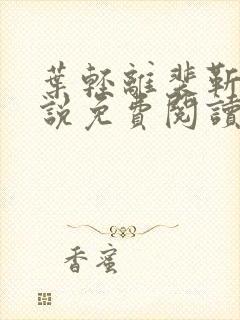 葉輕離裴靳
說免費閱讀
香蜜